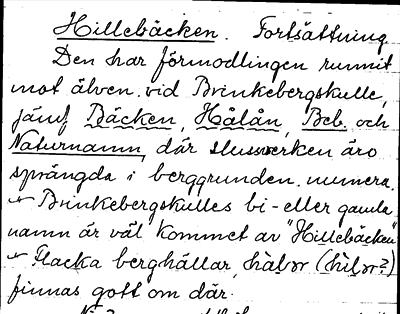 Hillebäcken. Fortsättning
Den har förmodlingen runnit
mot älven vid Brinkebergskulle,
jämf Bäcken, Hålån, Beb. och
Naturnamn, där slussverken äro
sprängda i berggrunden numera.
Brinkebergskulles bi- eller gamla
namn är väl kommet av "Hillebäcken"
Flacka berghällar, hàlər (hìlər?)
finnas gott om där.